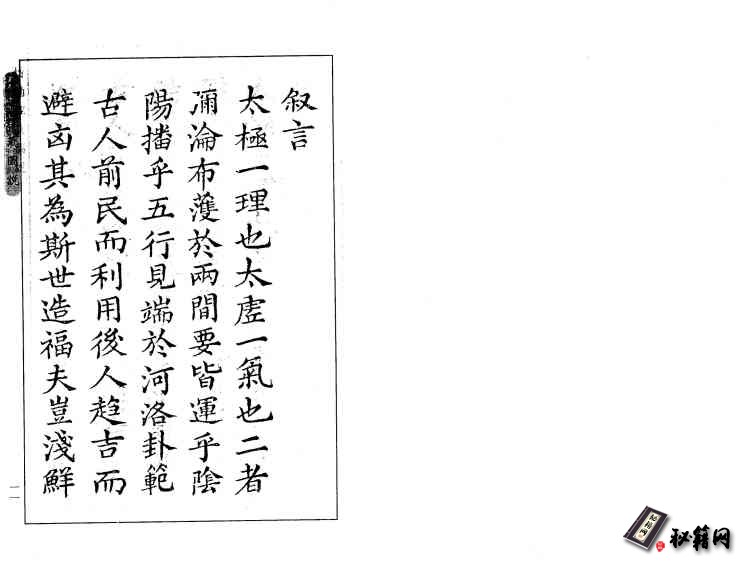 叙言
太極一理也太虗一氣也二者
彌淪布濩於兩間要皆運乎陰
陽播乎五行見端於河洛卦範
古人前民而利用後人趋吉而
避凶其為斯世造福夫豈淺鮮
圖說
二
秘籍网